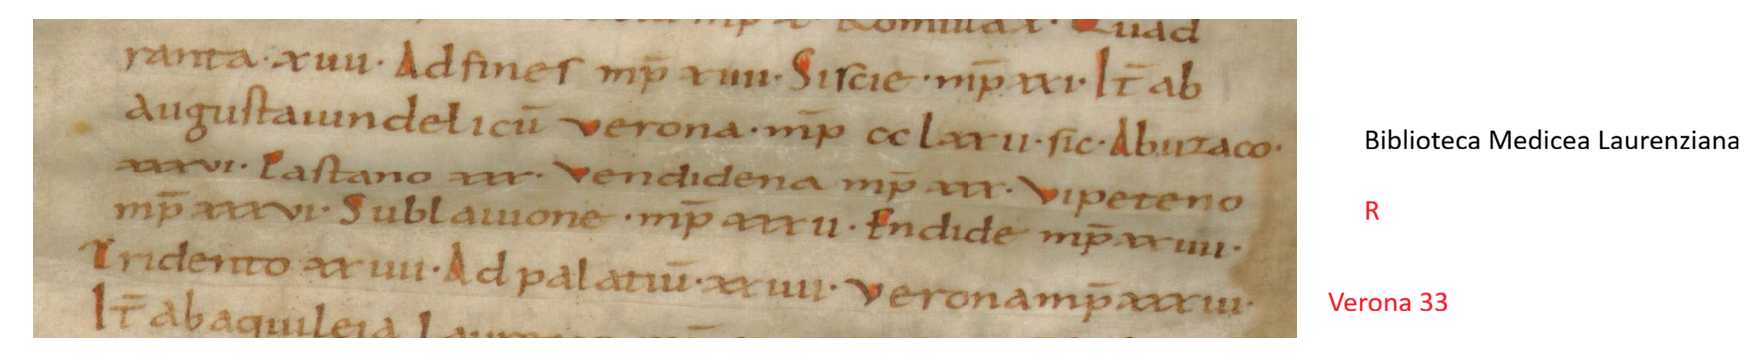 Quad
ranta· xiiii· Ad fines mp̄ xiiii· Siscie· mp̄ xxi· It̄ ab
augustauindelicū verona· mp̄ cclxxii· sic· Abuzaco·
xxxvi· Pastano xxx· Vendidena mp̄ xxx· Vipeteno
mp̄ xxxvi· Sublauione· mp̄ xxxii· Endide mp̄ xxiiii·
Tridento xxiiii· Ad palatiū· xxiiii· Verona mp̄ xxxiii·
It̄ ab aquileia
Biblioteca Medicea Laurenziana
R
Verona 33